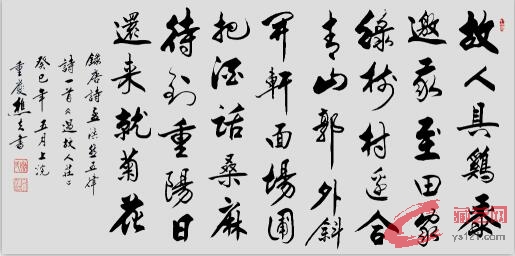 故人具鷄黍
邀我至田家
綠樹村邊合
青山郭外斜
開軒面場圃
把酒話桑麻
待到重陽日
還来就菊花
錄唐詩孟浩然五律
詩一首過故人莊
癸巳年五月上浣